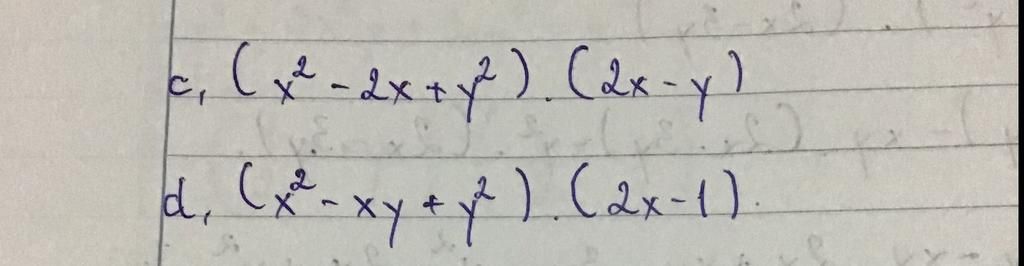 c, (x² - 2x + y²) . (2x - y)
d, (x² - xy + y²) . (2x - 1).